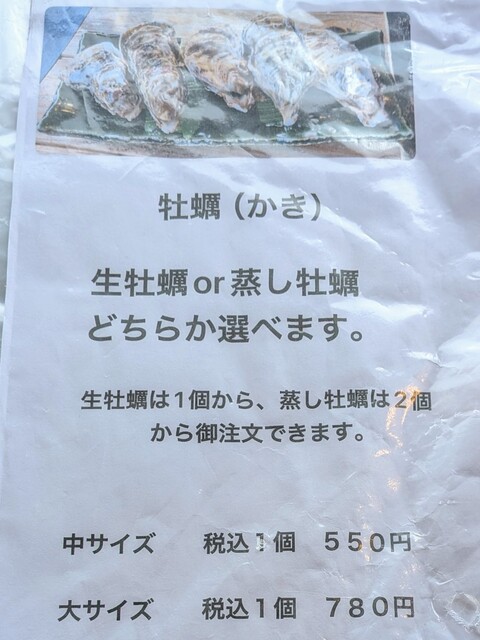 牡蠣（かき）
生牡蠣or蒸し牡蠣
どちらか選べます。
生牡蠣は1個から、蒸し牡蠣は2個
から御注文できます。
中サイズ　税込1個　550円
大サイズ　税込1個　780円